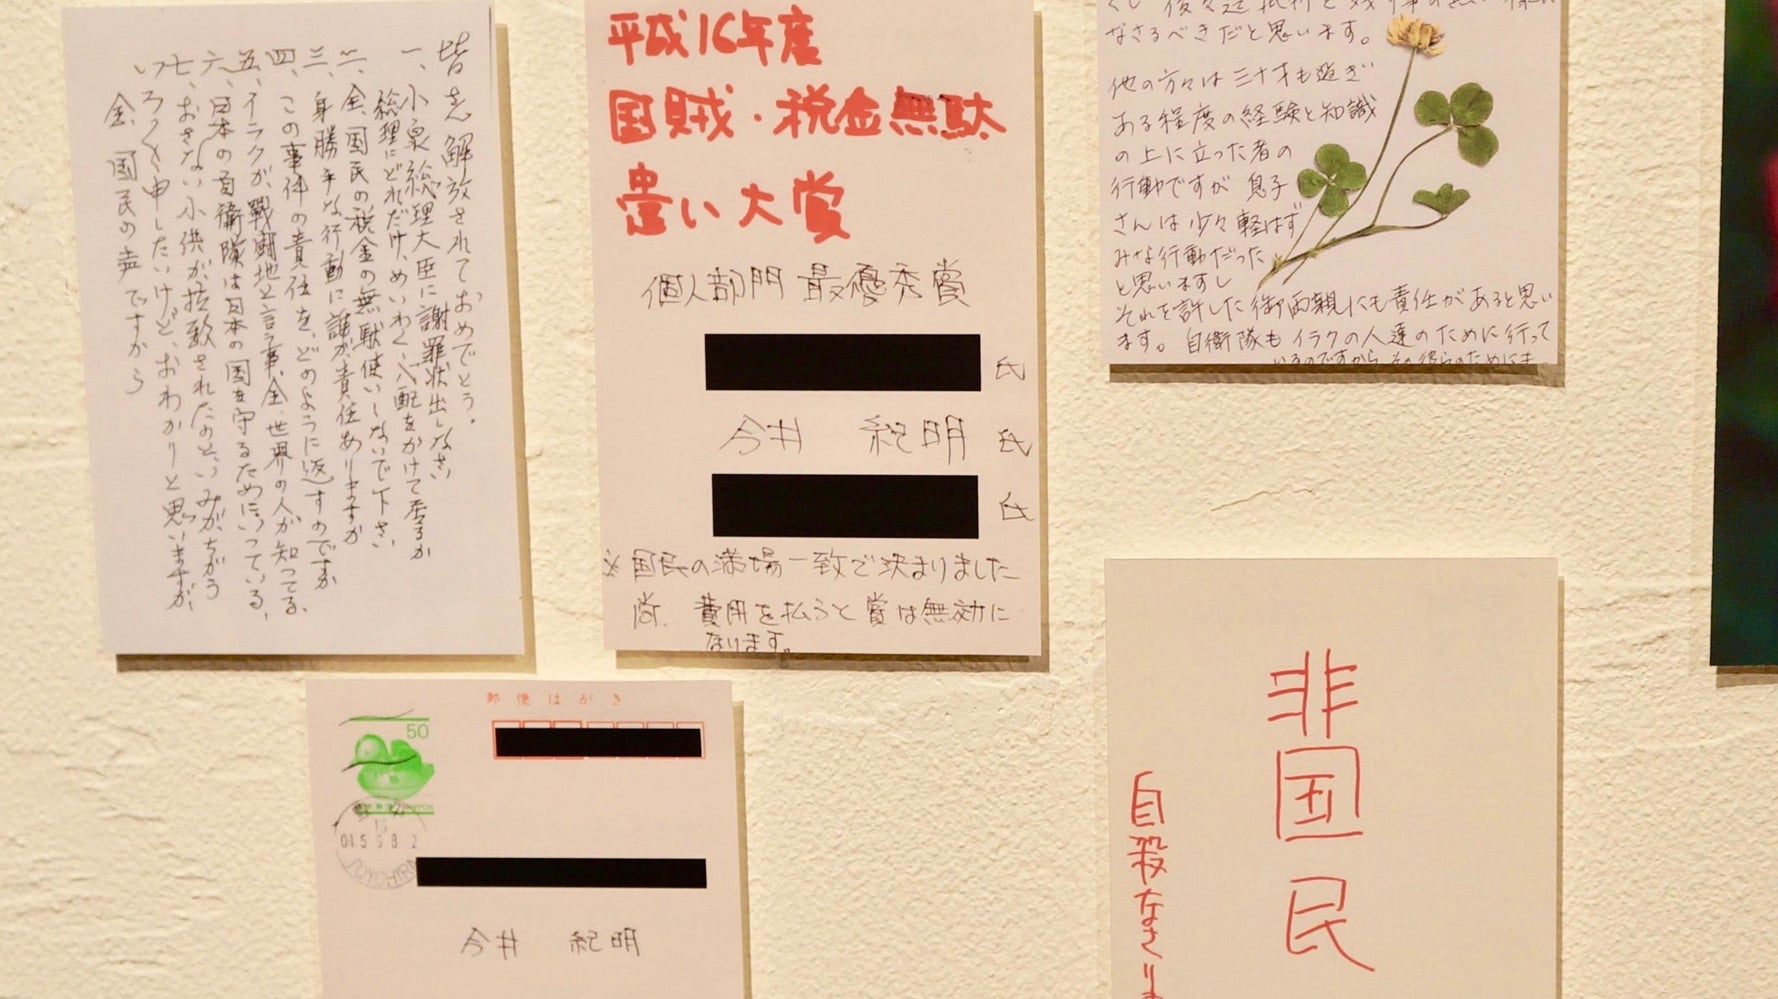 皆さん解放されておめでとう。
一、小泉総理大臣に謝罪状出しなさい
総理にどれだけ、めいわく、心配をかけて居るか
二、全、国民の税金の無駄使いしないで下さい
三、身勝手な行動に誰が責任ありますか
四、この事件の責任を、どのように返すのですか
五、イラクが、戦闘地と言う事、全、世界の人が知ってる、
六、日本の自衛隊は日本の国を守るためにいっている、
七、おさない小供が、拉致されたのと、いみが、ちがう
いろいろ申したいけど、おわかりと思いますが、
全、国民の声ですから
平成16年度
国賊・税金無駄
遣い大賞
個人部門 最優秀賞
氏
今井 紀明 氏
氏
※国民の満場一致で決まりました
尚、費用を払うと賞は無効に
なります。
なさるべきだと思います。
他の方々は三十才も過ぎ
ある程度の経験と知識
の上に立った者の
行動ですが 息子
さんは少々軽はず
みな行動だった
と思いますし
それを許した御両親にも責任があると思い
ます。自衛隊もイラクの人達のために行って
いるのですから
郵便はがき
50
今井 紀明
非国民
自殺なさい